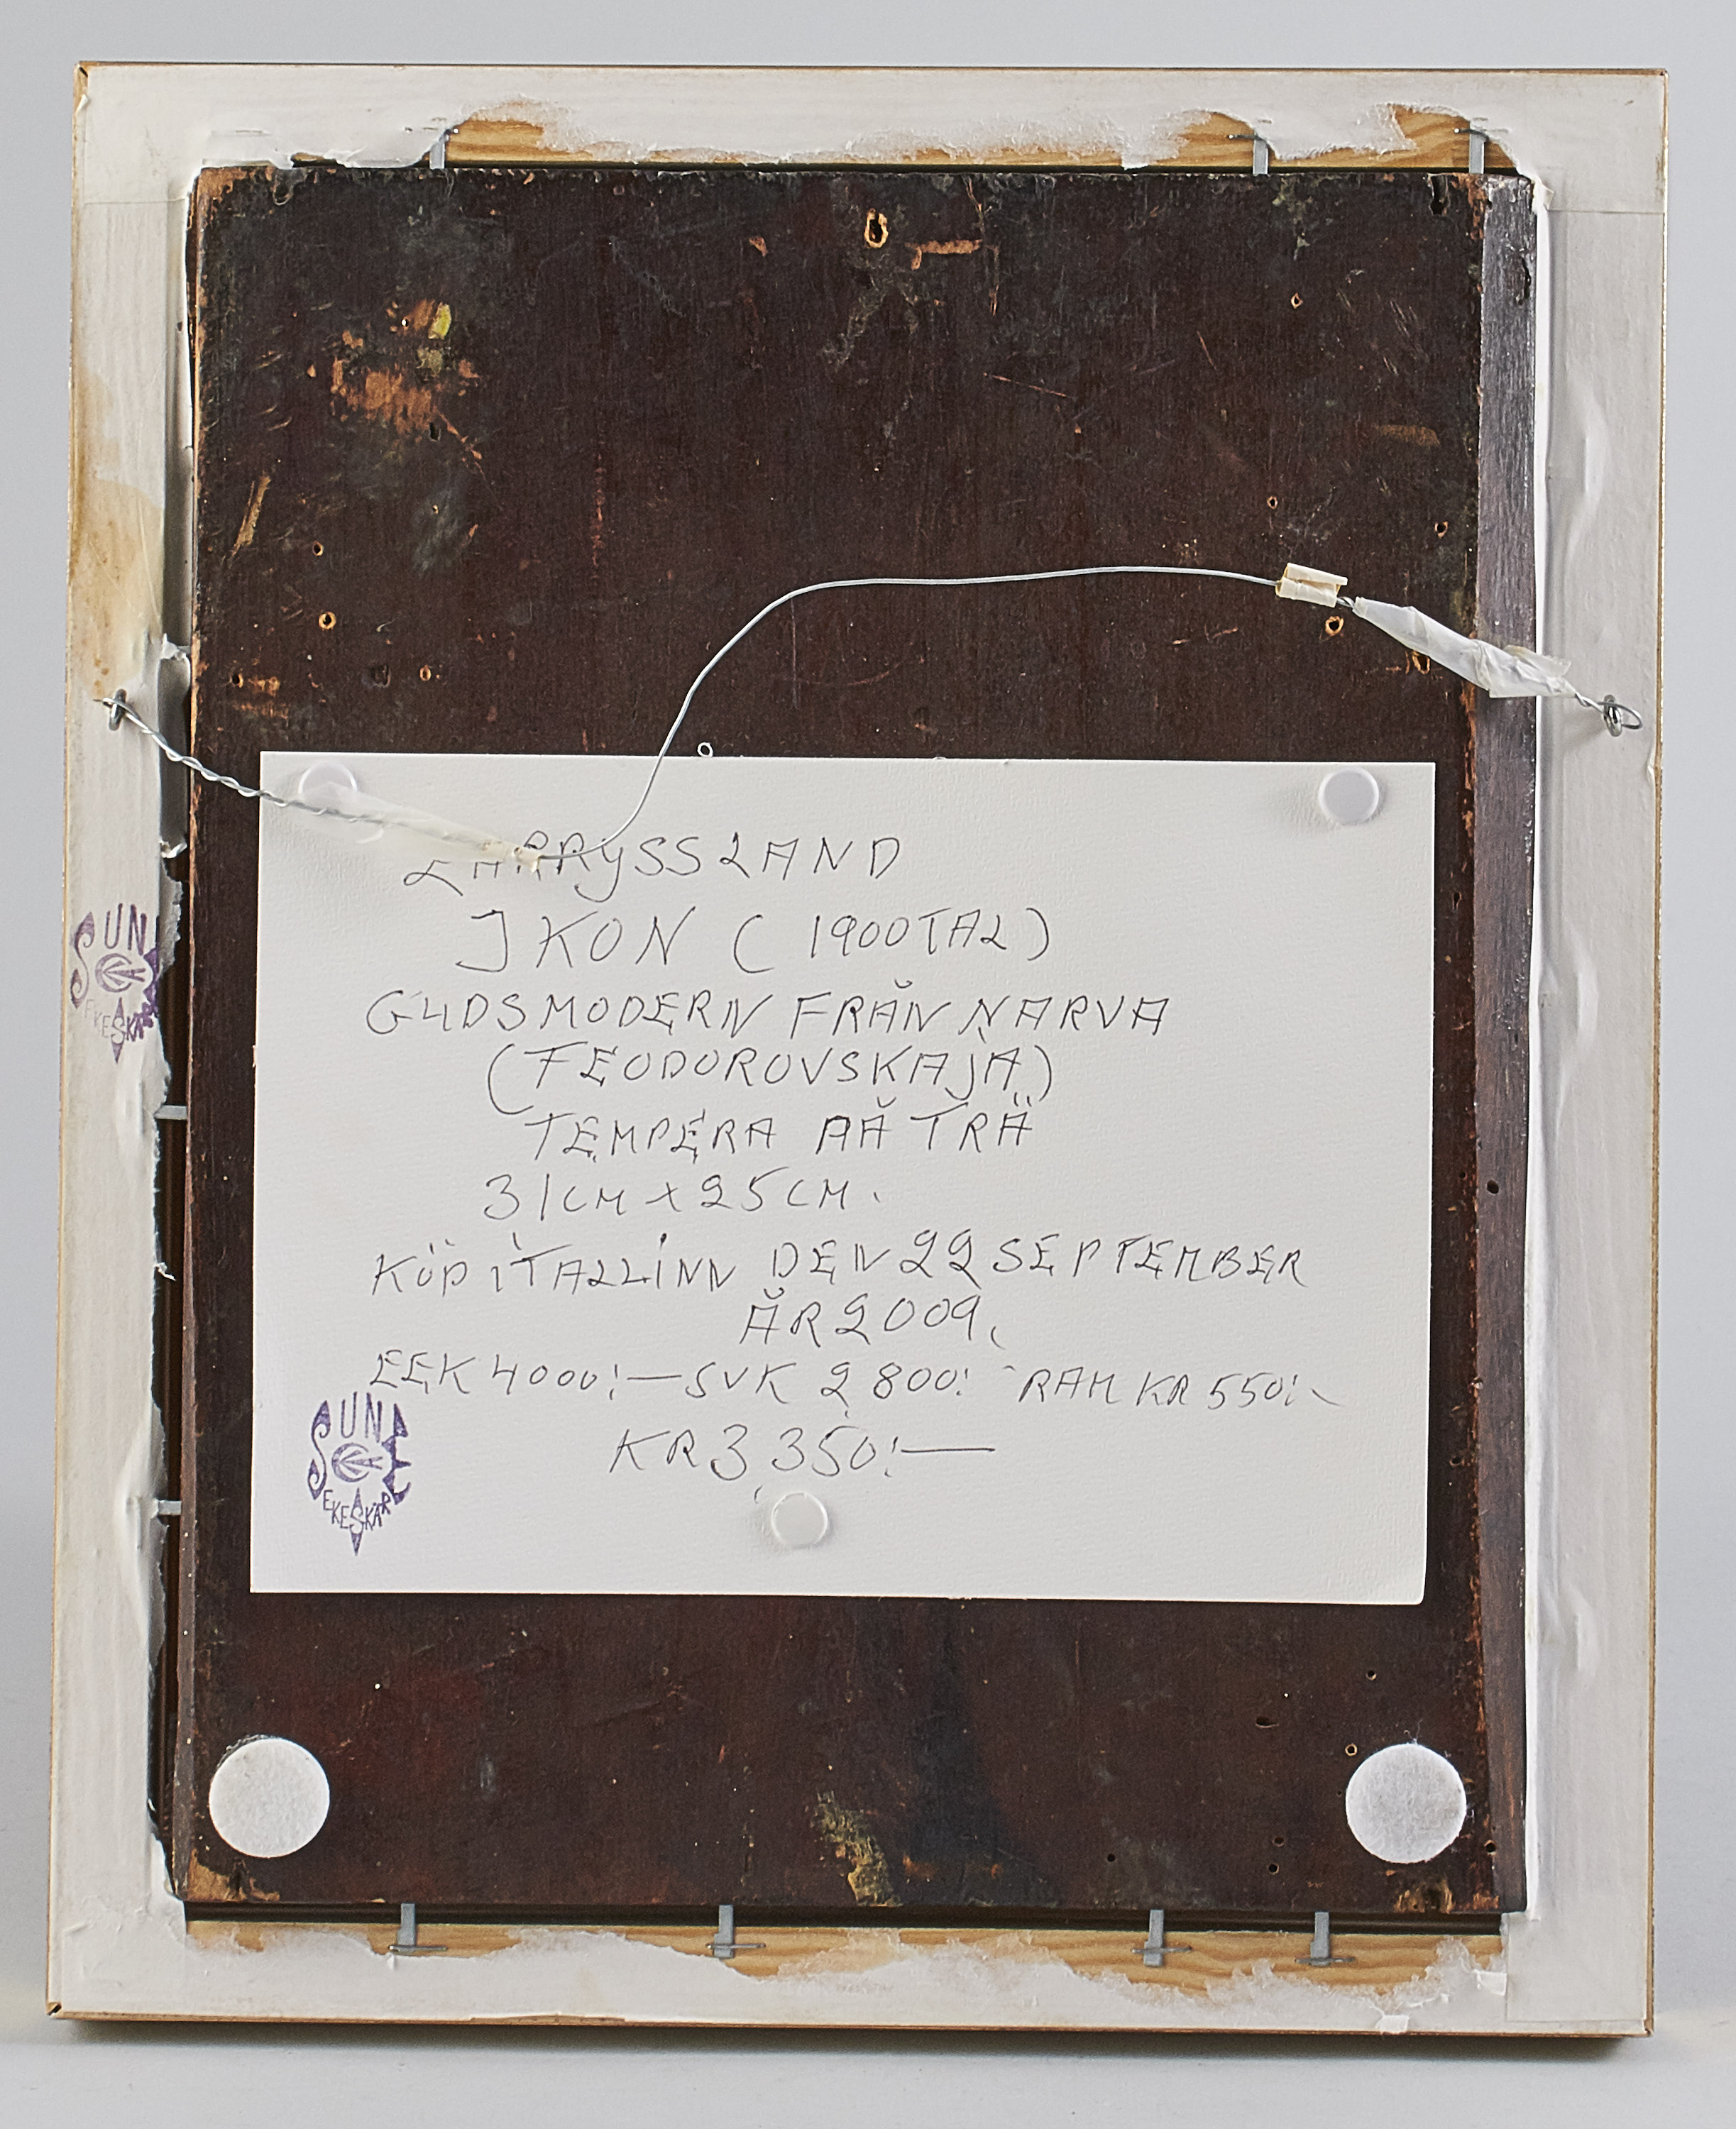 RYSSLAND
IKON (1900TAL)
GUDSMODERN FRÅN NARVA
(FEODOROVSKAJA)
TEMPERA PÅ TRÄ
31CM X 25CM.
KÖP I TALLINN DEN 22 SEPTEMBER
ÅR 2009.
EEK 4000:— SVK 2800: - RAM KR 550:-
KR 3350:—
SUNE
EKESKÄR
SUNE
EKESKÄR